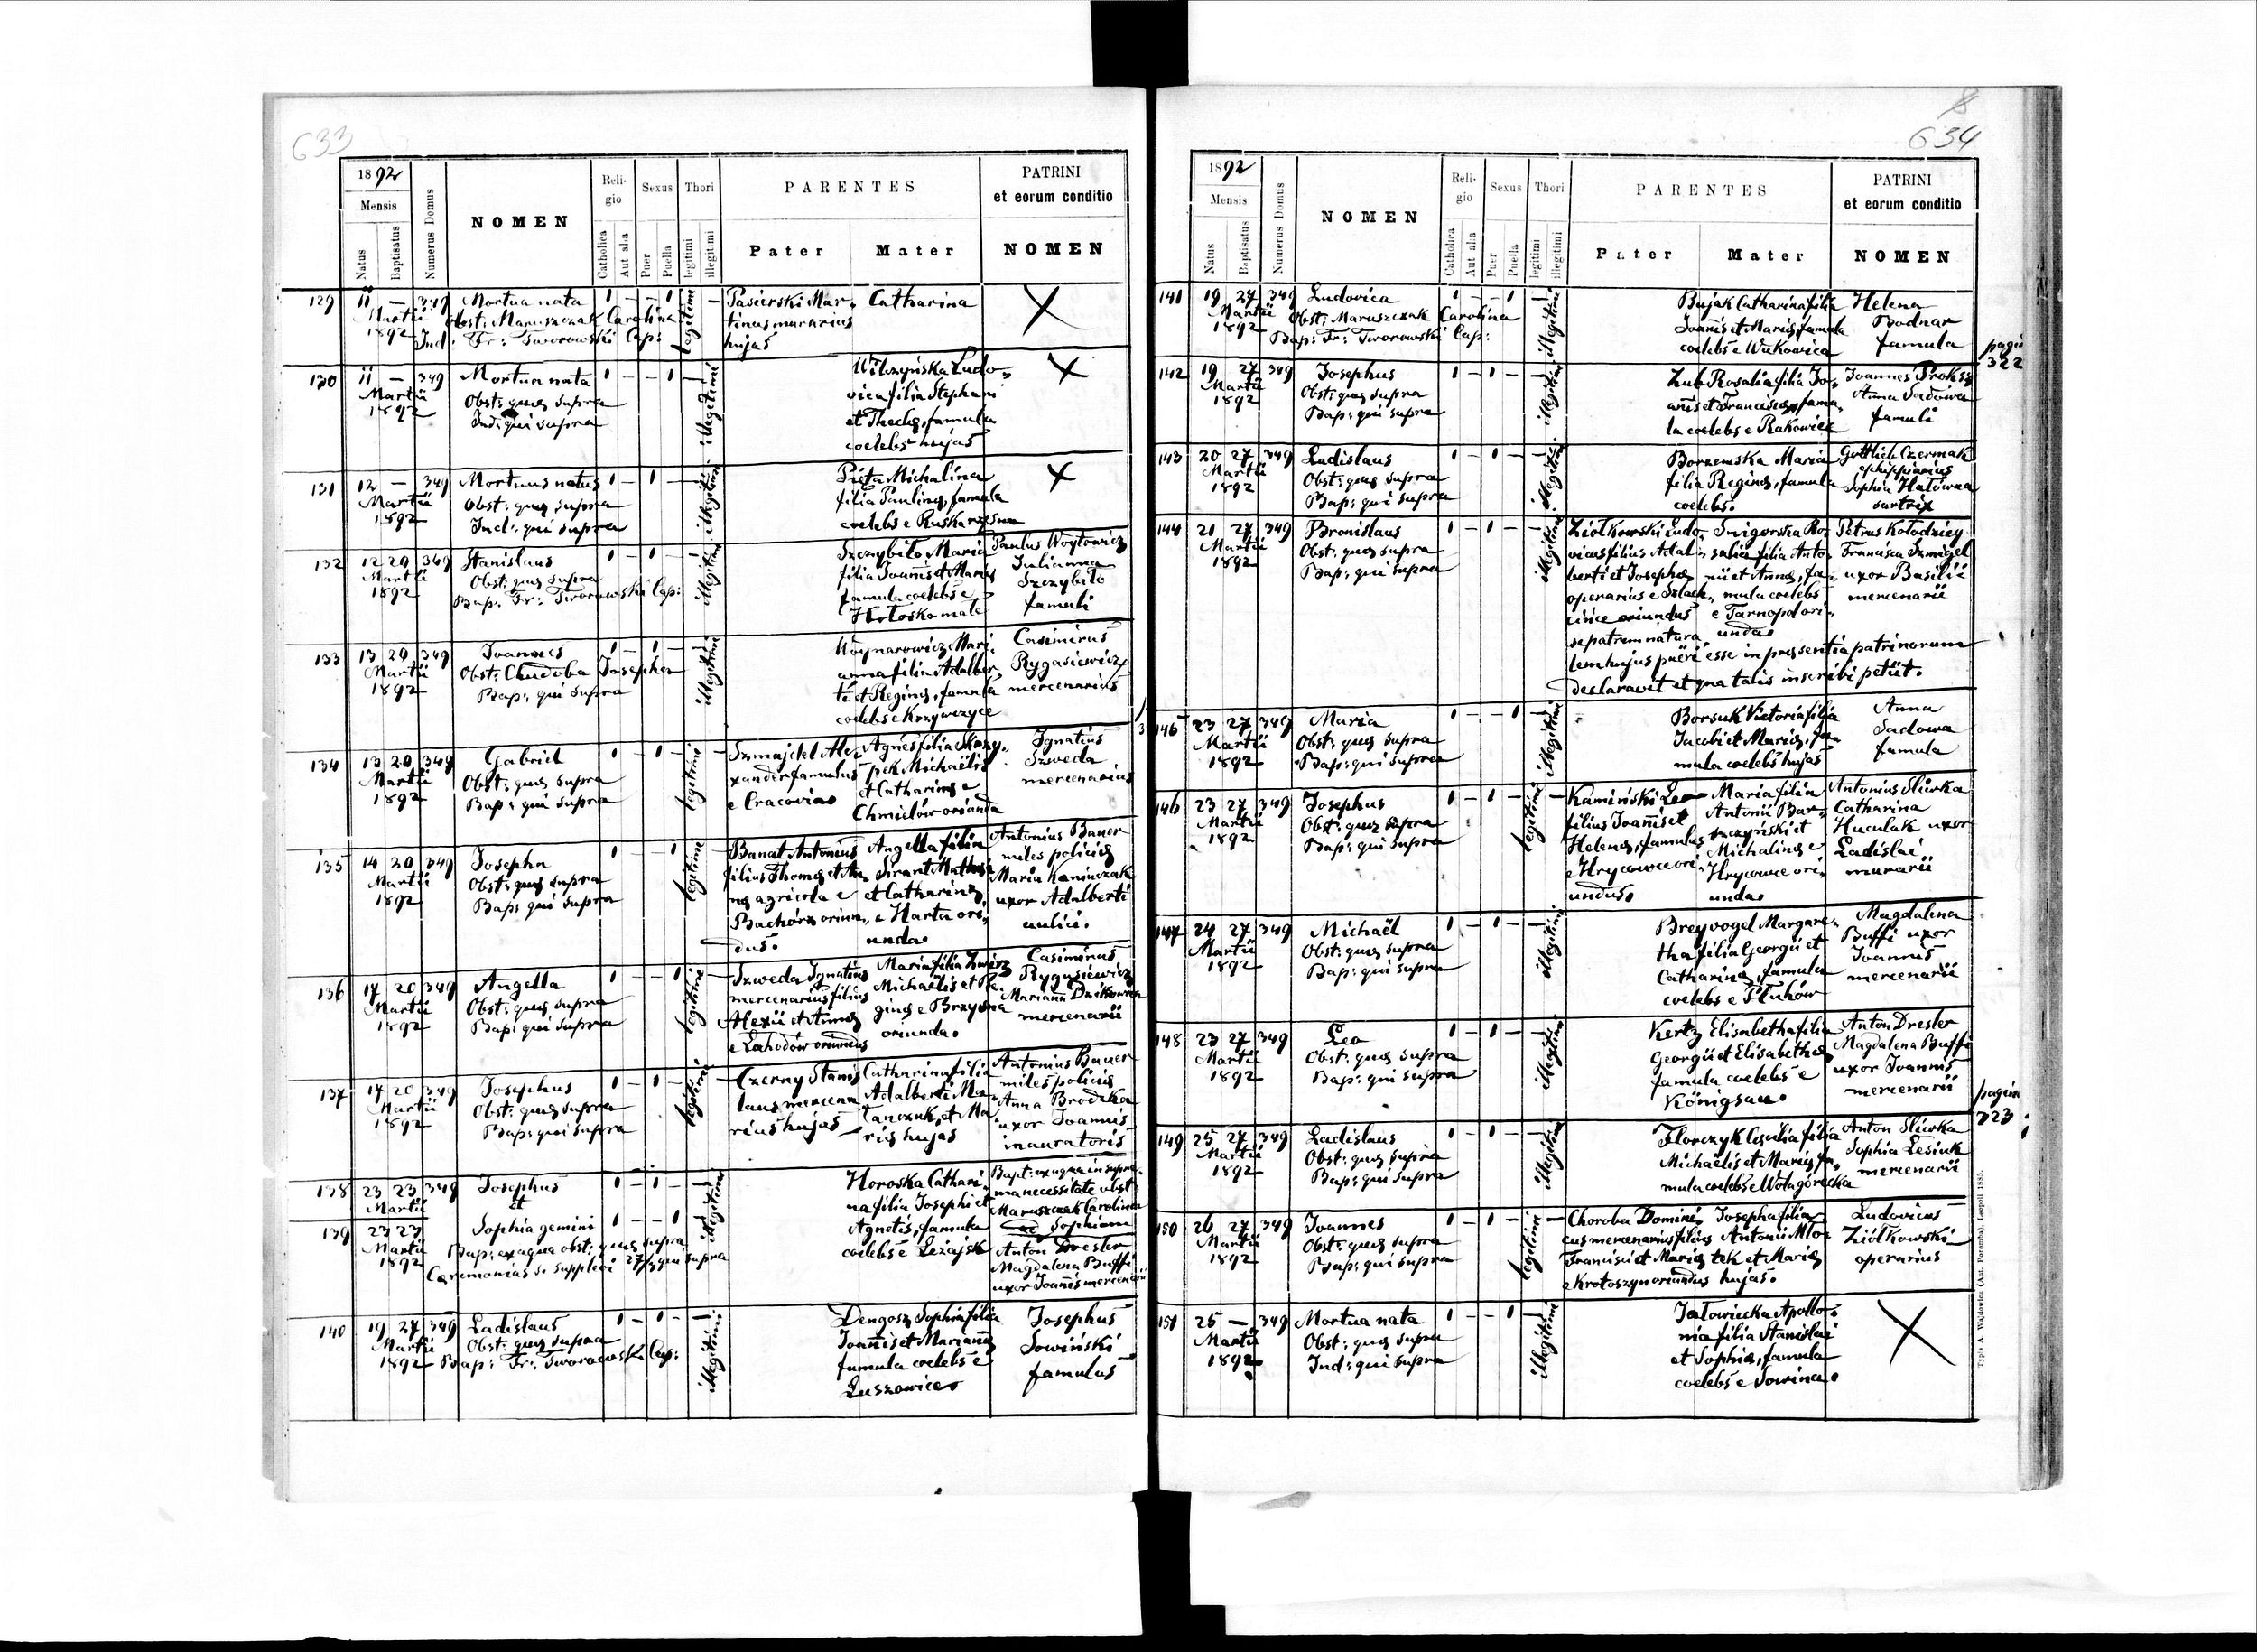 633
1892
Mensis
Natus
Baptisatus
Numerus Domus
NOMEN
Reli-
gio
Catholica
Aut alia
Sexus
Puer
Puella
Thori
legitimi
illegitimi
PARENTES
Pater
Mater
PATRINI
et eorum conditio
NOMEN
129 11 — 349 Mortua nata 1 — — 1 legitimi — Pasierski Mar- Catharina X
Martii Obst: Maruszczak Carolina tinus murarius
1892 Ind: Fr: Tworowski Cap: hujas
130 11 — 349 Mortua nata 1 — — 1 — illegitimi Wilczyńska Ludo- X
Martii Obst: quæ supra vica filia Stephani
1892 Ind: qui supra et Theclæ, famula
coelebs hujas
131 12 — 349 Mortuus natus 1 — 1 — — illegitimi Pięta Michalina X
Martii Obst: quæ supra filia Paulinæ, famula
1892 Ind: qui supra coelebs e Ruska
132 12 20 349 Stanislaus 1 — 1 — — illegitimi Szczybiło Maria Paulus Woytowicz
Martii Obst: quæ supra filia Joannis et Mariæ Julianna
1892 Bap: Fr: Tworowski Cap: famula coelebs e Szczybiło
małe famuli
133 13 20 349 Joannes 1 — 1 — — illegitimi Woynarowicz Mari Casimirus
Martii Obst: Chudoba Josepha anna filia Adalber- Rygasiewicz
1892 Bap: qui supra ti et Reginæ, famula mercenarius
coelebs e Krzywczyce
134 13 20 349 Gabriel 1 — 1 — legitimi — Szmajdel Ale- Agnes filia Ignatius
Martii Obst: quæ supra xander famulus pek Michaëlis Szweda
1892 Bap: qui supra e Cracovia et Catharinæ e mercenarius
Chmielów oriunda
135 14 20 349 Josepha 1 — — 1 legitimi — Banat Antonius Angella filia Antonius Bauer
Martii Obst: quæ supra filius Thomæ et An- miles policiæ
1892 Bap: qui supra næ agricola e et Catharinæ Maria Kaniuczak
Bachórz oriun- e Harta ori- uxor Adalberti
dus. unda. aulici.
136 17 20 349 Angella 1 — — 1 legitimi — Szweda Ignatius Maria filia Casimirus
Martii Obst: quæ supra mercenarius filius Michaëlis et Re- Rygasiewicz
1892 Bap: qui supra Alexii et Annæ ginæ e Marianna
e Lahodów oriundus oriunda. mercenarii
137 17 20 349 Josephus 1 — 1 — legitimi — Czerny Stanis Catharina filia Antonius Bauer
Martii Obst: quæ supra laus mercena Adalberti miles policiæ
1892 Bap: qui supra rius hujas et Ma Anna Brodzka
riæ hujas uxor Joannis
inauratoris
138 23 23 349 Josephus 1 — 1 — — illegitimi Horoska Cathari- Bapt: ex aqua in supre-
Martii et na filia Josephi et ma necessitate obst:
139 23 23 Sophia gemini 1 — — 1 Agnetis, famula Maruszczak Carolina
Martii Bap: ex aqua obst: quæ supra coelebs e Leżajsk ad Sophiam
1892 Ceremonias s. supplevi 27/3 qui supra Anton Drester
Magdalena Buffi
uxor Joannis mercenarii
140 19 27 349 Ladislaus 1 — 1 — — illegitimi Dengosz Sophia filia Josephus
Martii Obst: quæ supra Joannis et Mariannæ Sowiński
1892 Bap: Fr: Tworowski Cap: famula coelebs e famulus
Luszowice
8
634
1892
Mensis
Natus
Baptisatus
Numerus Domus
NOMEN
Reli-
gio
Catholica
Aut alia
Sexus
Puer
Puella
Thori
legitimi
illegitimi
PARENTES
Pater
Mater
PATRINI
et eorum conditio
NOMEN
141 19 27 349 Ludovica 1 — — 1 — illegitimi Bujak Catharina filia Helena
Martii Obst: Maruszczak Carolina Joannis et Mariæ, famula Bodnar
1892 Bap: Fr: Tworowski Cap: coelebs e Wukowice famula
pagi
322
142 19 27 349 Josephus 1 — 1 — — illegitimi Zub Rosalia filia Jo- Joannes Proksz
Martii Obst: quæ supra annis et Franciscæ, famu- Anna Sadowa
1892 Bap: qui supra la coelebs e Rakowice famuli
143 20 27 349 Ladislaus 1 — 1 — — illegitimi Borzemska Maria Gottlieb Czermak
Martii Obst: quæ supra filia Reginæ, famula ephippiarius
1892 Bap: qui supra coelebs. Sophia Hałówna
sartrix
144 21 27 349 Bronislaus 1 — 1 — — illegitimi Ziółkowski Ludo- Śnigorska Ro- Petrus Kołodziey
Martii Obst: quæ supra vicus filius Adal- salia filia Anto- Francisca Szmigel
1892 Bap: qui supra berti et Josephæ nii et Annæ, fa- uxor Basilii
operarius e Szlach- mula coelebs mercenarii
cińce oriundus e Tarnopol ori-
se patrem natura unda.
lem hujus pueri esse in præsentia patrinorum
declaravit et qua talis inscribi petiit.
145 23 27 349 Maria 1 — — 1 — illegitimi Borsuk Victoria filia Anna
Martii Obst: quæ supra Jacobi et Mariæ, fa- Sadowa
1892 Bap: qui supra mula coelebs hujas famula
146 23 27 349 Josephus 1 — 1 — legitimi — Kamiński Leo Maria filia Antonius Sliwka
Martii Obst: quæ supra filius Joannis et Antonii Bar- Catharina
1892 Bap: qui supra Helenæ, famulus szczyński et Huculak uxor
e Hrycowce ori- Michalinæ e Ladislai
undus. Hrycowce ori- murarii
unda.
147 24 27 349 Michaël 1 — 1 — — illegitimi Breyvogel Margare- Magdalena
Martii Obst: quæ supra tha filia Georgii et Buffi uxor
1892 Bap: qui supra Catharinæ, famula Joannis
coelebs e Płuhów mercenarii
148 23 27 349 Leo 1 — 1 — — illegitimi Kertz Elisabetha filia Anton Drester
Martii Obst: quæ supra Georgii et Elisabethæ Magdalena Buffi
1892 Bap: qui supra famula coelebs e uxor Joannis
Königsau. mercenarii
pagin
323
149 25 27 349 Ladislaus 1 — 1 — — illegitimi Florczyk Cecilia filia Anton Sliwka
Martii Obst: quæ supra Michaëlis et Mariæ, fa- Sophia Lesiuk
1892 Bap: qui supra mula coelebs e Wolagórecka mercenarii
150 26 27 349 Joannes 1 — 1 — legitimi — Choroba Domini- Josepha filia Ludovicus
Martii Obst: quæ supra cus mercenarius filius Antonii Mło- Ziółkowski
1892 Bap: qui supra Francisci et Mariæ tek et Mariæ operarius
e Krotoszyn oriundus hujas.
151 25 — 349 Mortua nata 1 — — 1 — illegitimi Jałowiecka Apollo- X
Martii Obst: quæ supra nia filia Stanislai
1892 Ind: qui supra et Sophiæ, famula
coelebs e Sowina.
Typis A. Wajdowicz (Ant. Poremba). Leopoli 1885.